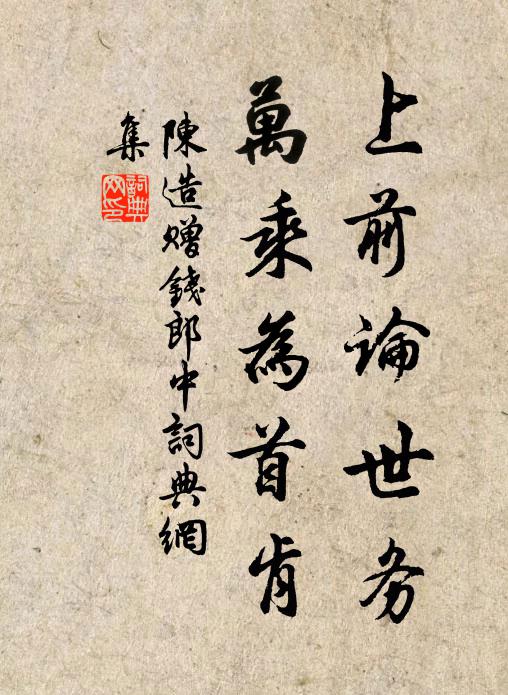 上前論世务
萬乘為首肯
陳造贈錢郎中詞典網
集
詞典
网印